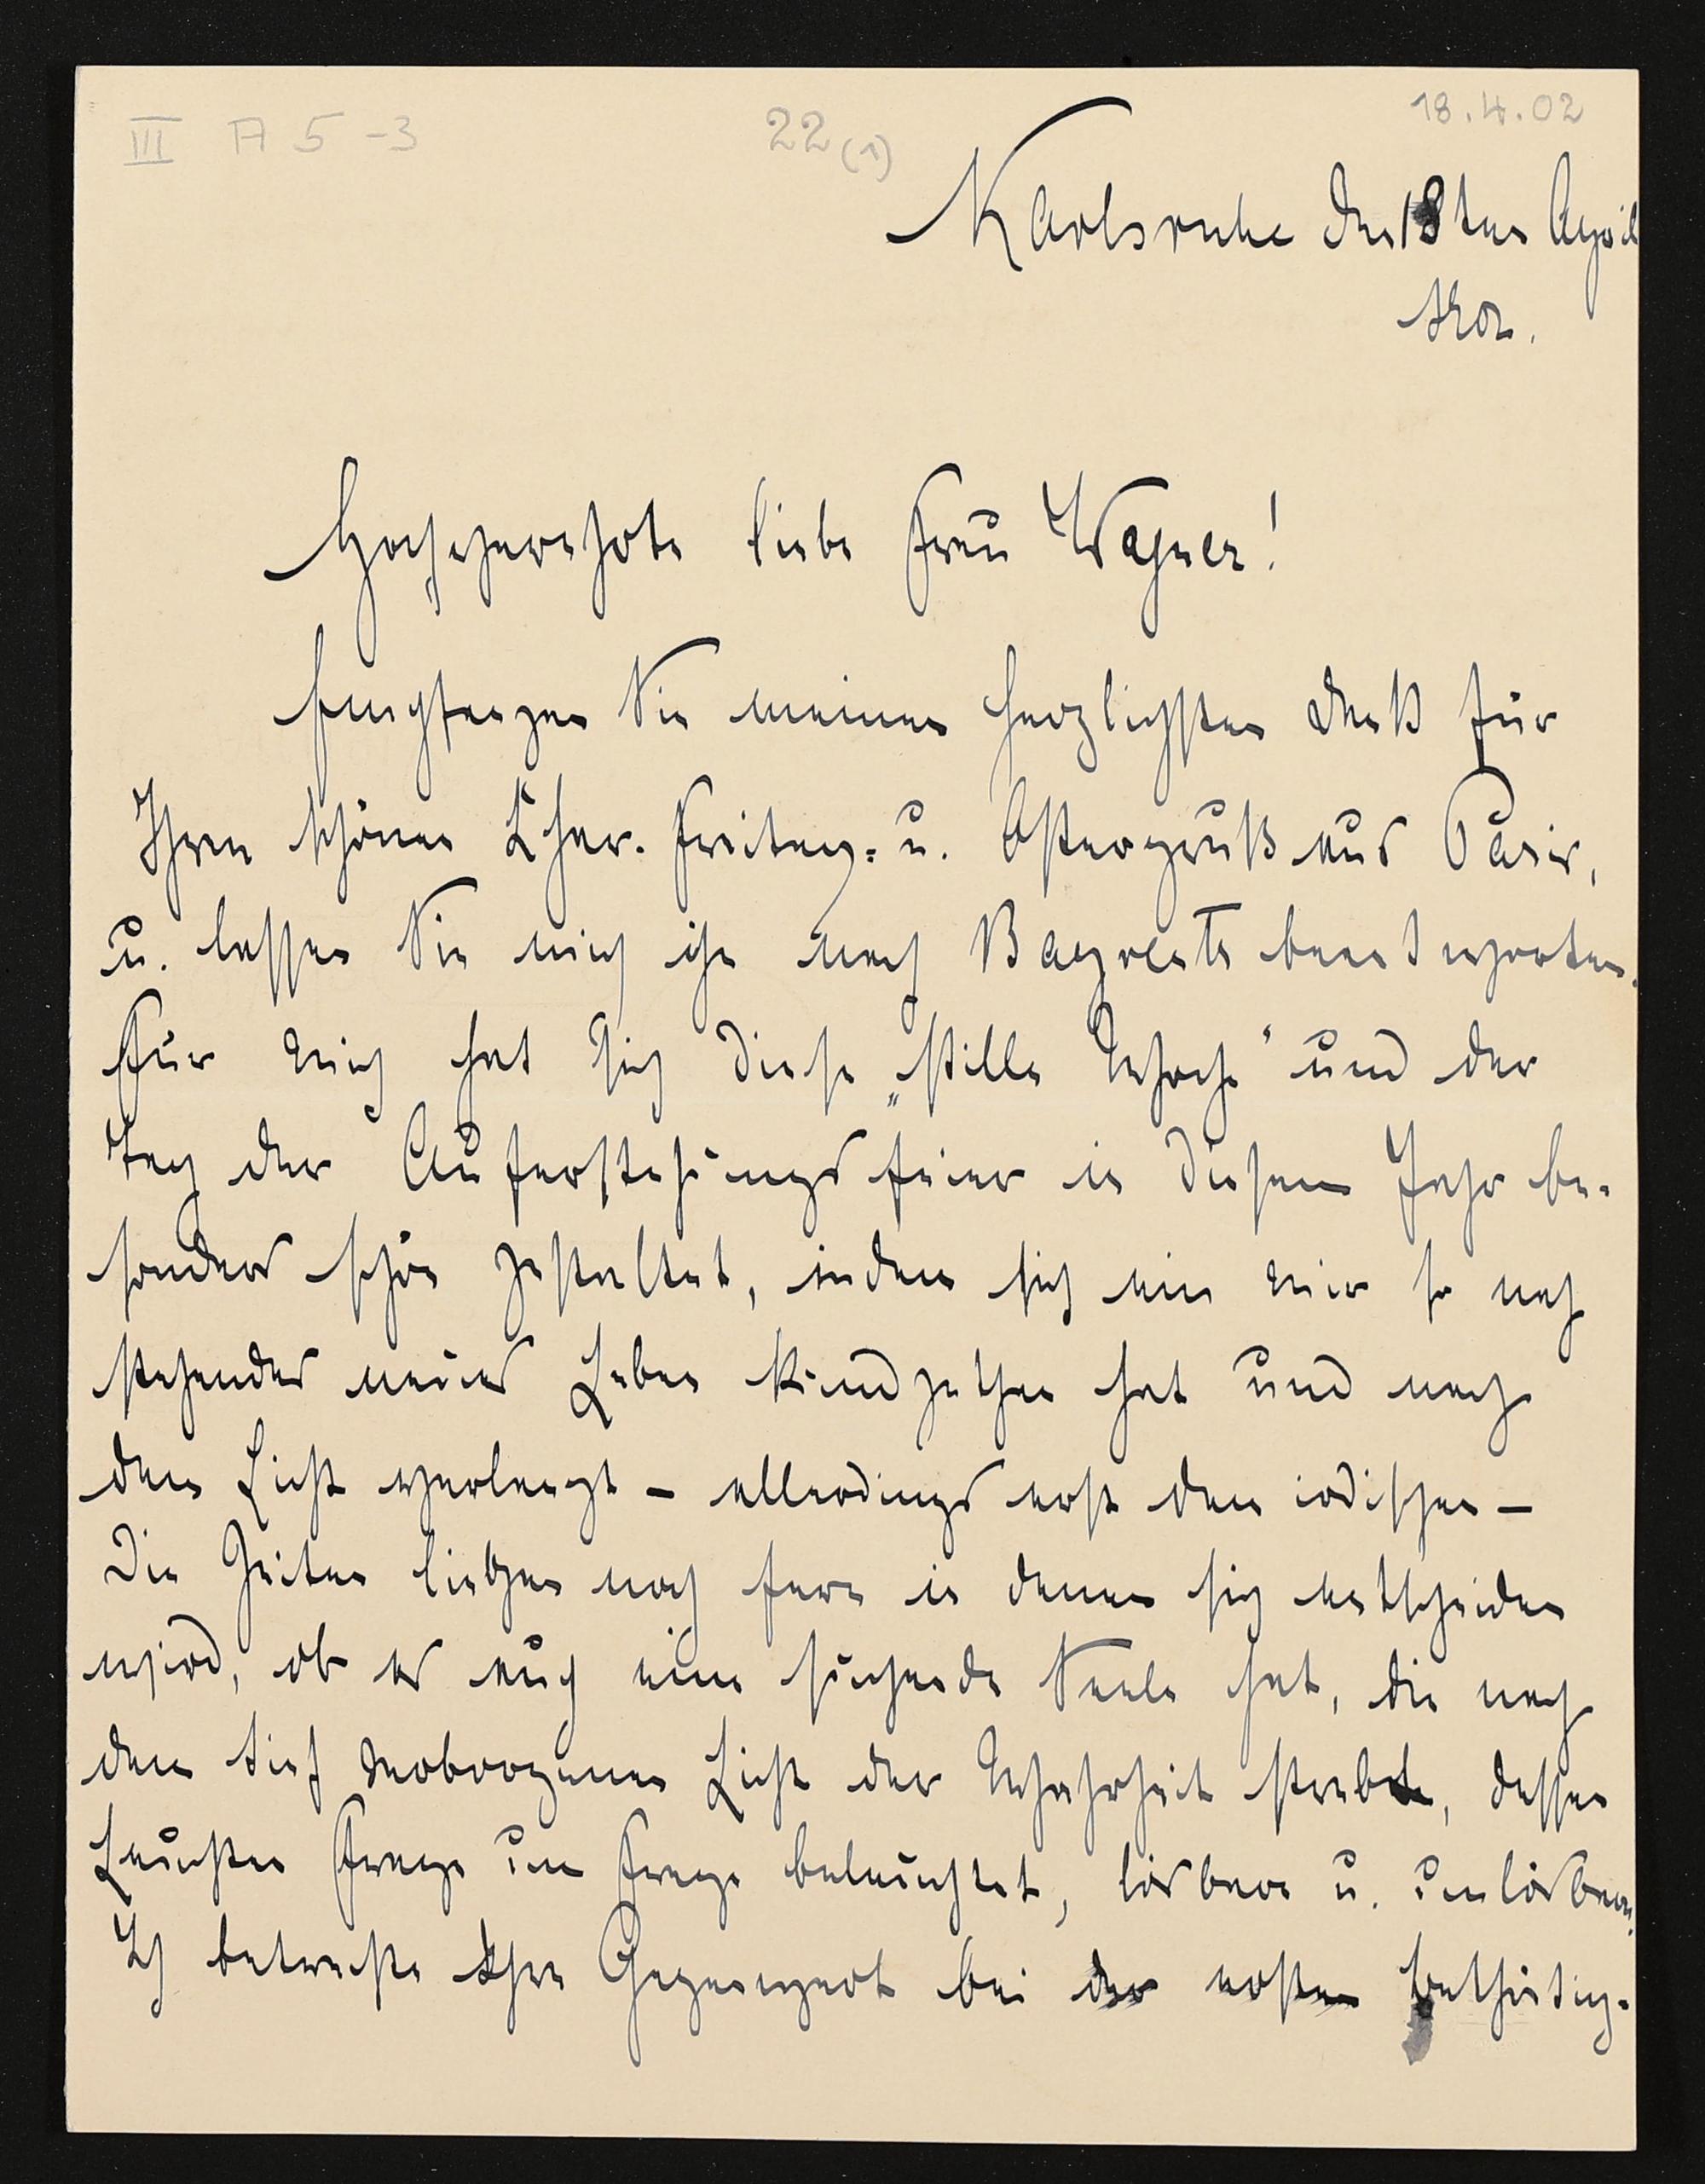 III A 5-3
22 (1)
18.4.02
Karlsruhe den 18ten April
1902.
Hochverehrte liebe Frau Wagner!
Empfangen Sie meinen herzlichsten Dank für
Ihren schönen Char-Freitag- u. Ostergruß aus Paris,
u. lassen Sie mich ihn nach Bayreuth beantworten.
Für mich hat sich diese „stille Woche" und der
Tag der Auferstehungsfeier in diesem Jahr be-
sonders schön gestaltet, indem sich ein mir so nah
stehendes neues Leben kund gethan hat und nach
dem Licht verlangt – allerdings erst dem irdischen –
Die Zeiten liegen noch fern in denen sich entscheiden
wird, ob es auch eine suchende Seele hat, die nach
dem tief verborgenen Licht der Wahrheit strebt, dessen
Leuchten Frage um Frage beleuchtet, lösbare u. unlösbare.
Ich betrachte Ihre Gegenwart bei der ersten Bethätig-